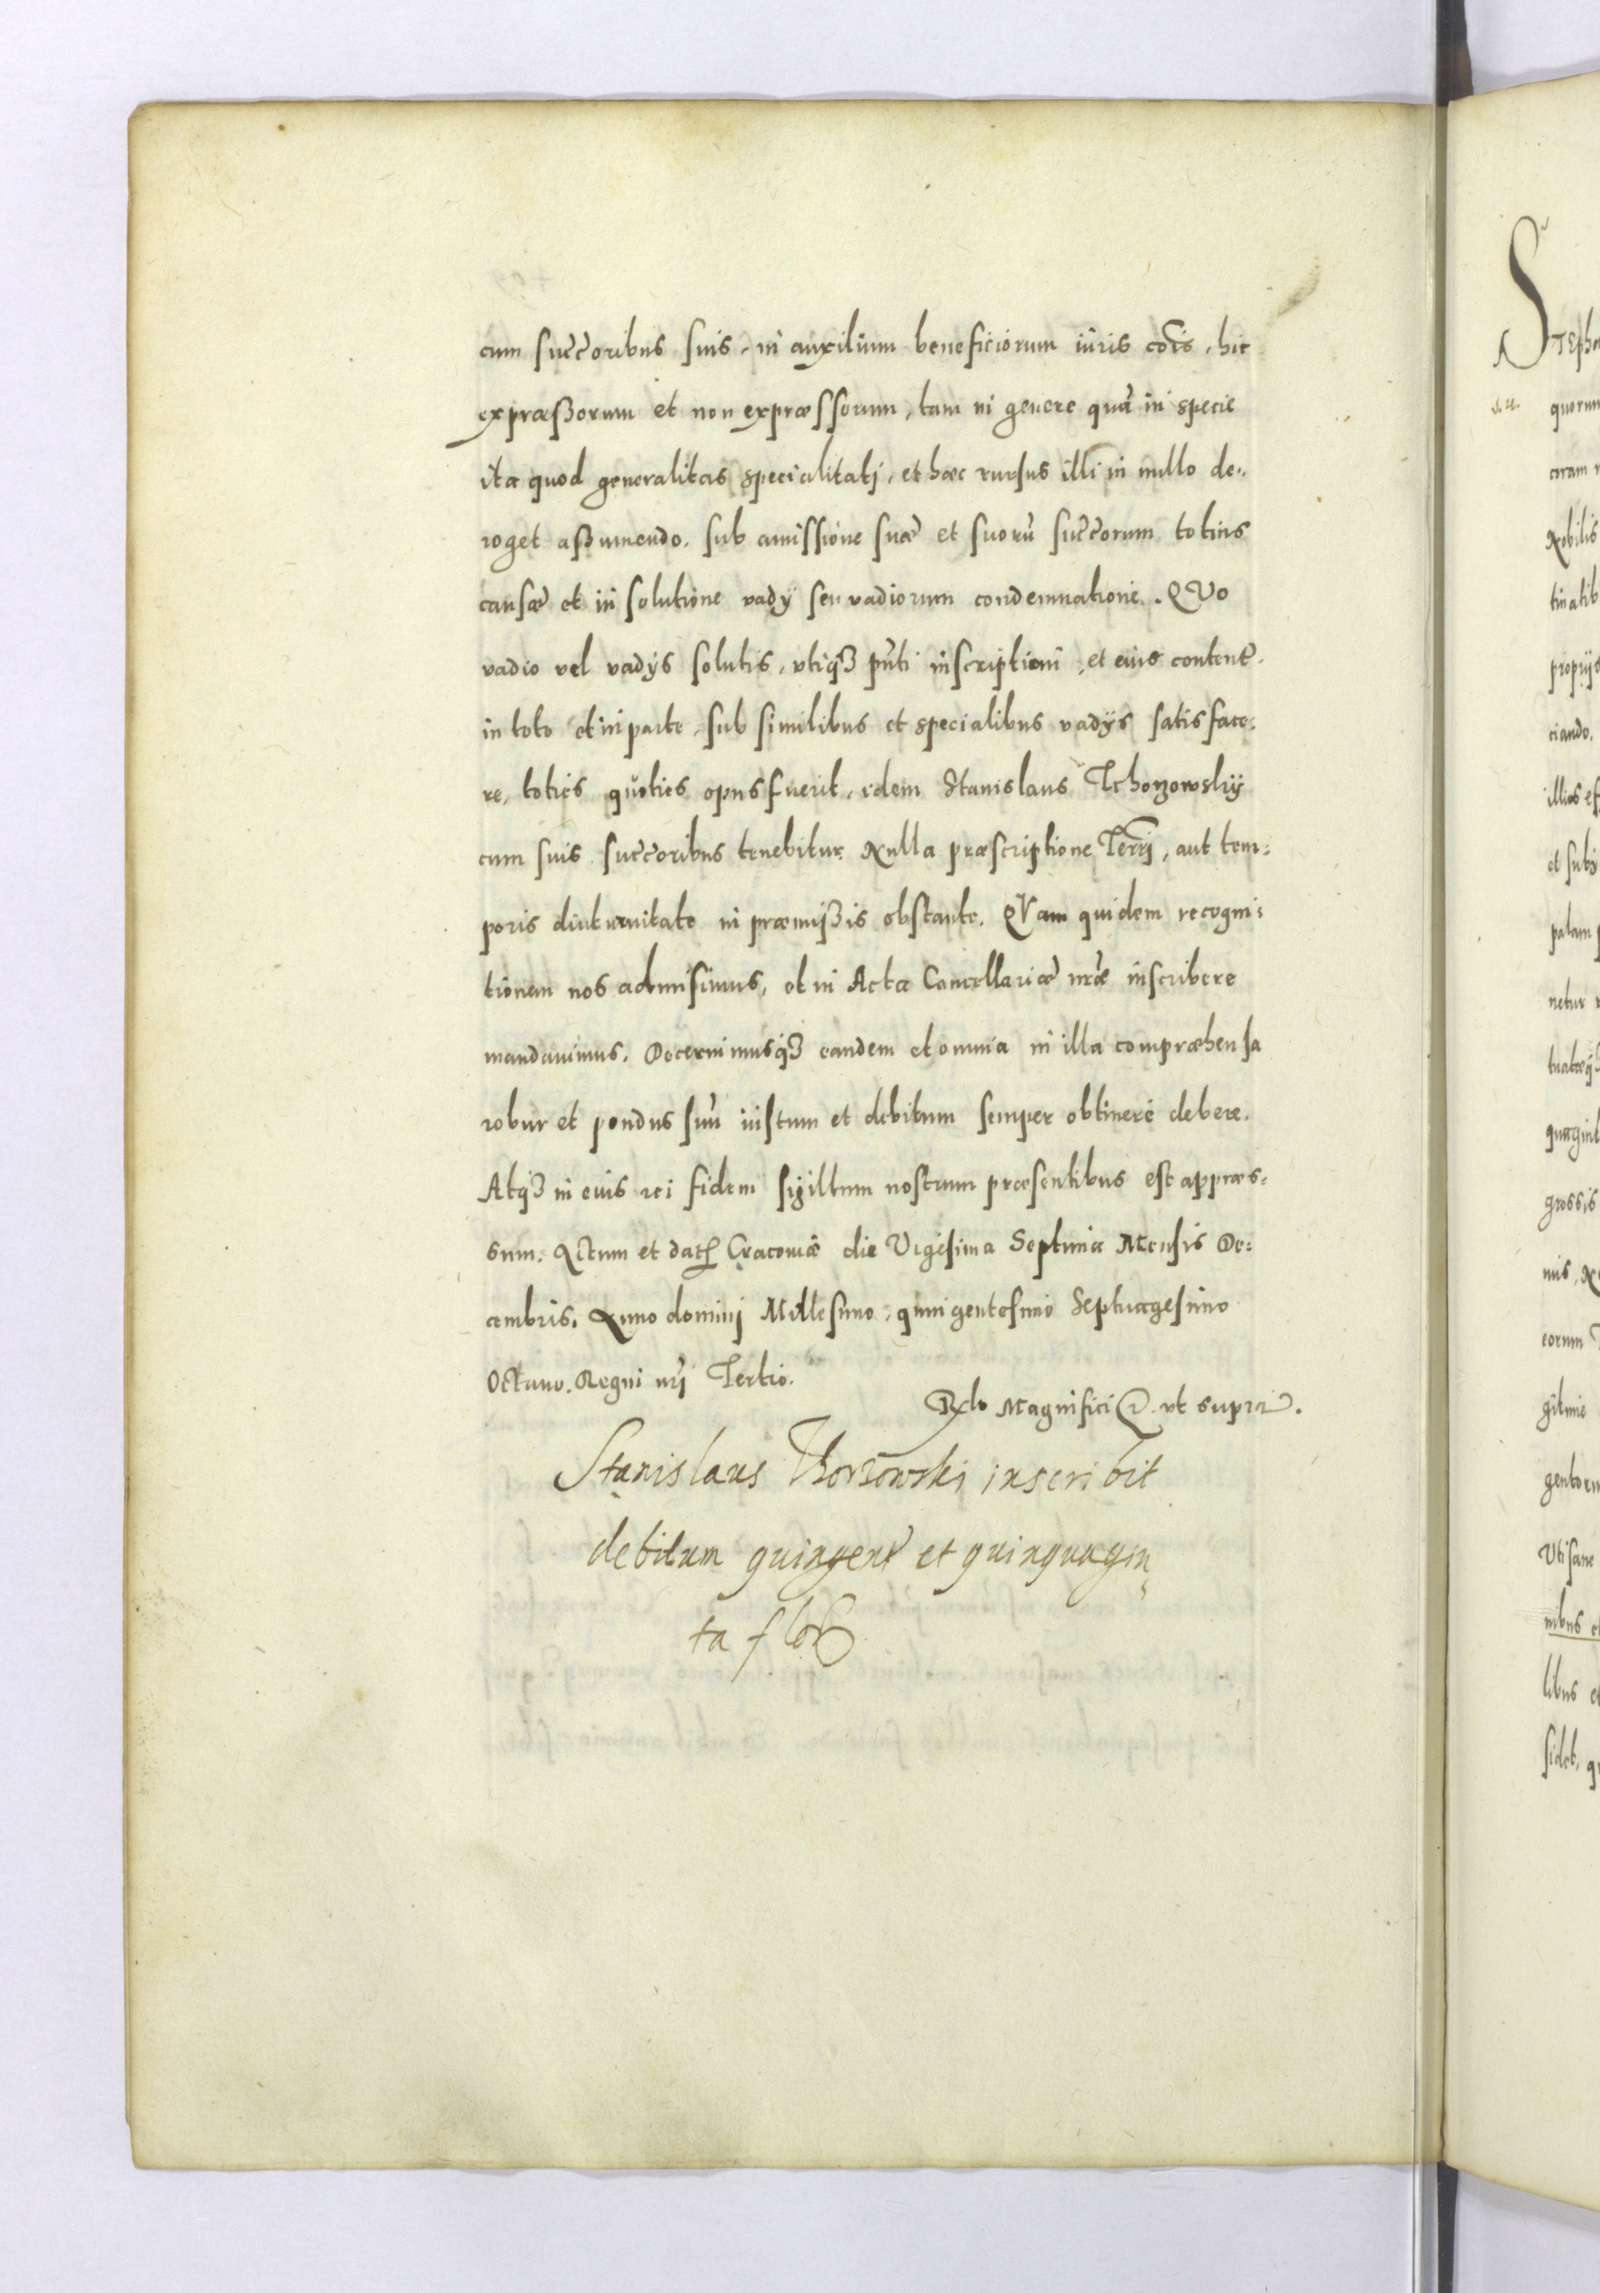 cum succoribus suis, in auxilium beneficiorum iuris cois, hic
expræssorum et non expræssorum, tam in genere quā in specie
ita quod generalitas specialitatj, et hæc rursus illi in nullo de-
roget assumendo. sub amissione suæ et suorū succorum totius
causæ et in solutione vadÿ seu vadiorum condemnatione. QVo
vadio vel vadÿs solutis, vtiqʒ pn̄ti inscriptioni, et eius content.
in toto et in parte, sub similibus et specialibus vadÿs satisface-
re, toties quoties opus fuerit, idem Stanislaus Tchorzowskÿ
cum suis succoribus tenebitur. Nulla præscriptione Terrj, aut tem-
poris diuturnitate in præmissis obstante. QVam quidem recogni-
tionem nos admisimus, et in Acta Cancellariæ nræ inscribere
mandauimus. Decernimusqʒ eandem et omnia in illa compræhensa
robur et pondus suū iustum et debitum semper obtinere debere.
Atqʒ in euis rei fidem sigillum nostrum præsentibus est appræs-
sum. Actum et dat Cracouiæ die Vigesima Septima Mensis De-
cembris, Anno dominj Millesimo, quingentesimo Septuagesimo
Octauo. Regni nrj Tertio.
Rlo Magnifici ut supra.
Stanislaus Thorzowski inscribit
debitum quingent et quinquagin
ta flor
S
Tepha
quorum
coram
Nobilis
tinatib
proprijs
ciando,
illius ef
et subi
palam p
netur
tuatæqʒ
quagint
grossis
eorum
gitime
gentoru
Vti sane
nibus et
libus et
sidet, q